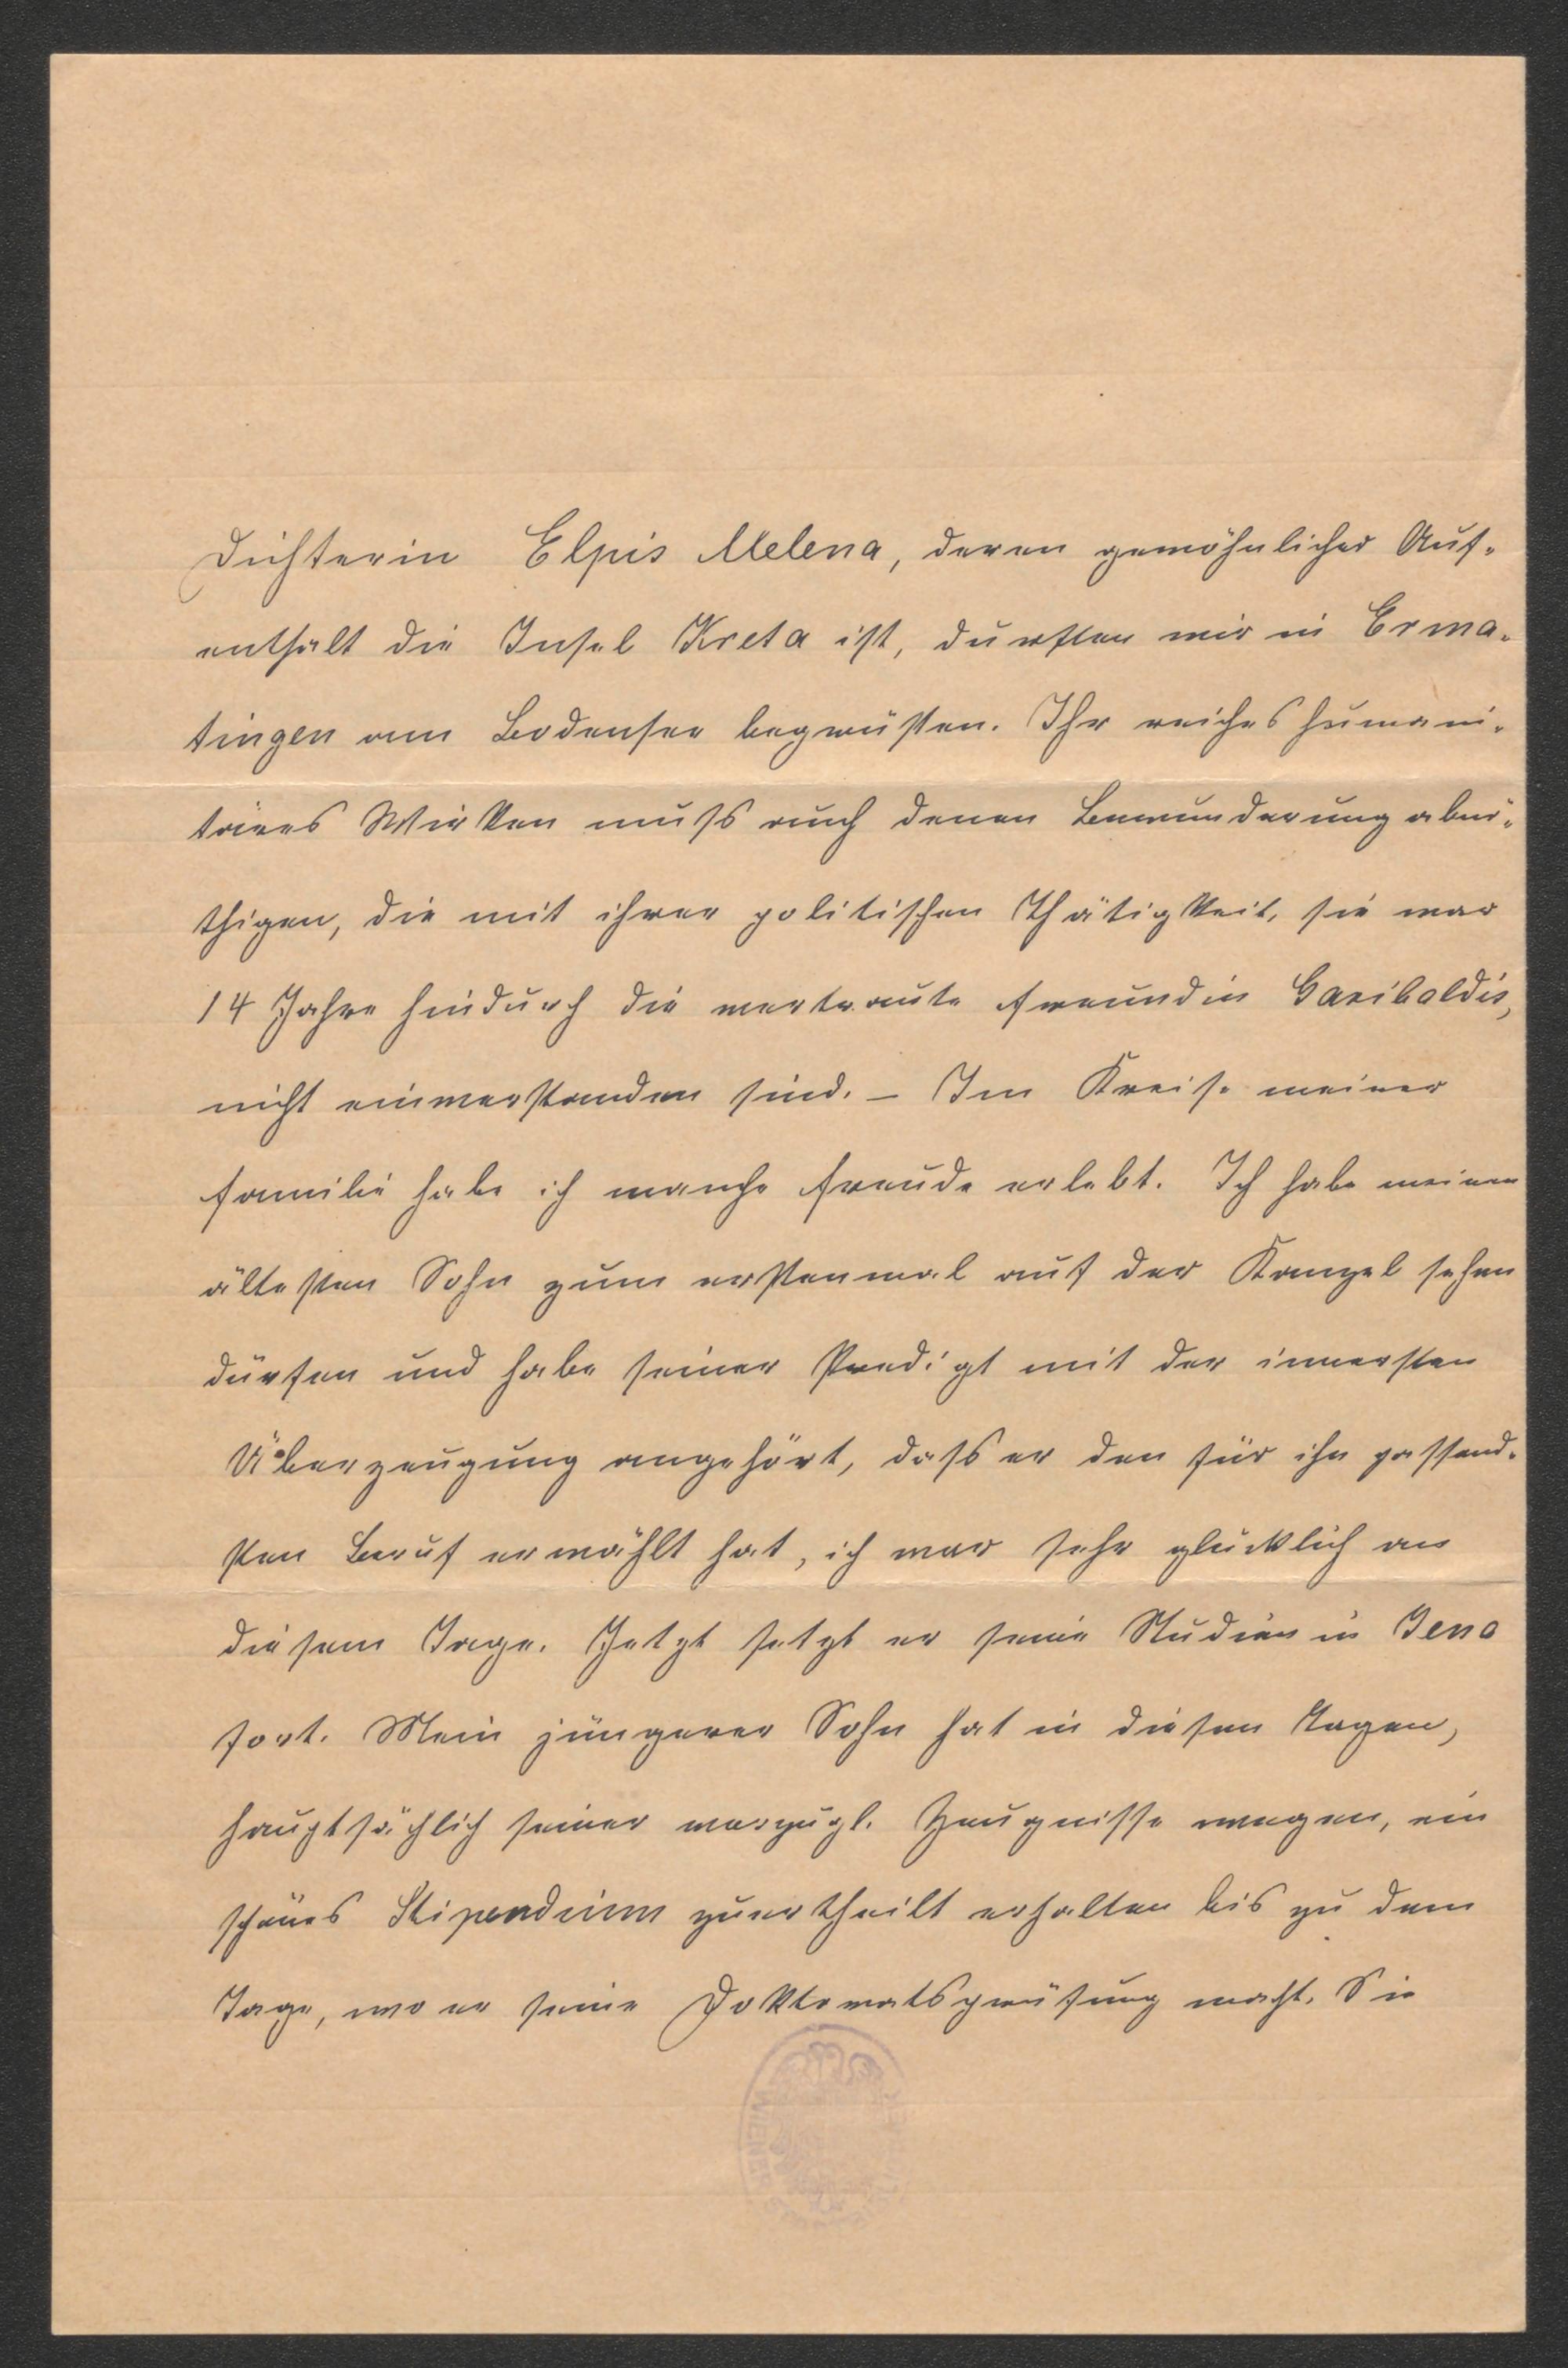 Dichterin Elpis Melena, deren gewöhnlicher Auf-
enthalt die Insel Kreta ist, durften wir in Erma-
tingen am Bodensee begrüßen. Ihr reiches humani-
täres Wirken muß auch denen Bewunderung abnö-
thigen, die mit ihrer politischen Thätigkeit, sie war
14 Jahre hindurch die vertraute Freundin Garibaldis,
nicht einverstanden sind. – Im Kreise meiner
Familie habe ich manche Freude erlebt. Ich habe meinen
ältesten Sohn zum erstenmal auf der Kanzel sehen
dürfen und habe seiner Predigt mit der innersten
Überzeugung angehört, daß er den für ihn passend-
sten Beruf erwählt hat, ich war sehr glücklich an
diesem Tage. Jetzt setzt er seine Studien in Jena
fort. Mein jüngerer Sohn hat in diesen Tagen,
hauptsächlich seiner vorzügl. Zeugnisse wegen, ein
schönes Stipendium zuertheilt erhalten bis zu dem
Tage, wo er seine Doktoratsprüfung macht. Sie